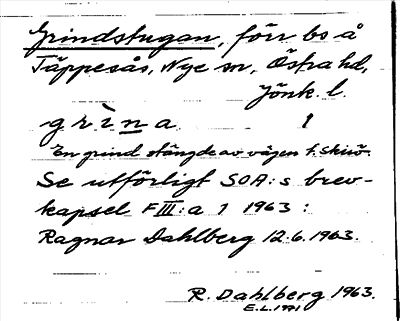 Grindstugan, förr bs å
Täppesås, Nye sn, Östra hd,
Jönk. l.
grìna 1
En grind stängde av vägen t. Skirö.
Se utförligt SOA:s brev-
kapsel F III:a 1 1963 :
Ragnar Dahlberg 12.6.1963.
R. Dahlberg 1963.
E.L. 1991